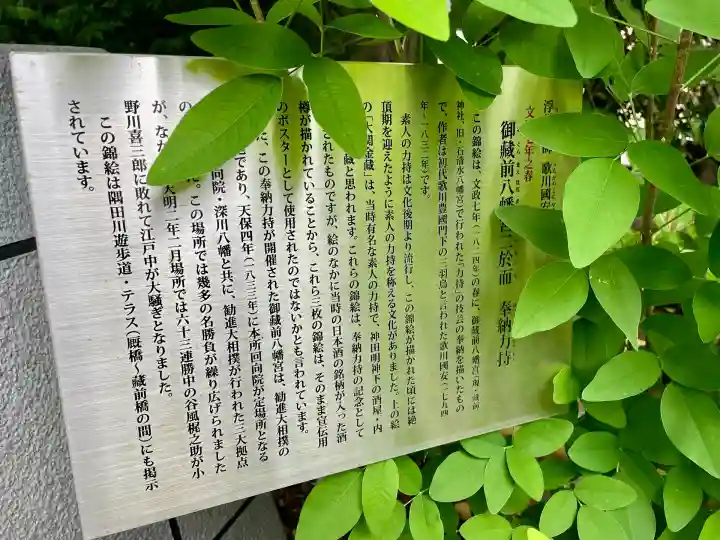 浮 歌川國安
文 年之春
御藏前八幡宮ニ於而 奉納力持
この錦絵は、文政七年(一八二四年)の春に、御蔵前八幡宮(現・蔵前
神社、旧・石清水八幡宮)で行われた「力持」の技芸の奉納を描いたもの
で、作者は初代歌川豊國門下の「三羽烏」と言われた歌川國安(一七九四
年〜一八三二年)です。
素人の力持は文化後期より流行し、この錦絵が描かれた頃には絶
頂期を迎えたように素人の力持を称える文化がありました。上の絵
の「大関金蔵」は、当時有名な素人の力持で、神田明神下の酒屋・内
蔵と思われます。これらの錦絵は、奉納力持の記念として
されたものですが、絵のなかに当時の日本酒の銘柄が入った酒
樽が描かれていることから、これら三枚の錦絵は、そのまま宣伝用
のポスターとして使用されたのではないかとも言われています。
に、この奉納力持が開催された御蔵前八幡宮は、勧進大相撲の
向院・深川八幡と共に、勧進大相撲が行われた三大拠点
であり、天保四年(一八三三年)に本所回向院が定場所となる
の 。この場所では幾多の名勝負が繰り広げられました
が、なか 天明二年二月場所では六十三連勝中の谷風梶之助が小
野川喜三郎に敗れて江戸中が大騒ぎとなりました。
この錦絵は隅田川遊歩道・テラス(厩橋〜蔵前橋の間)にも掲示
されています。